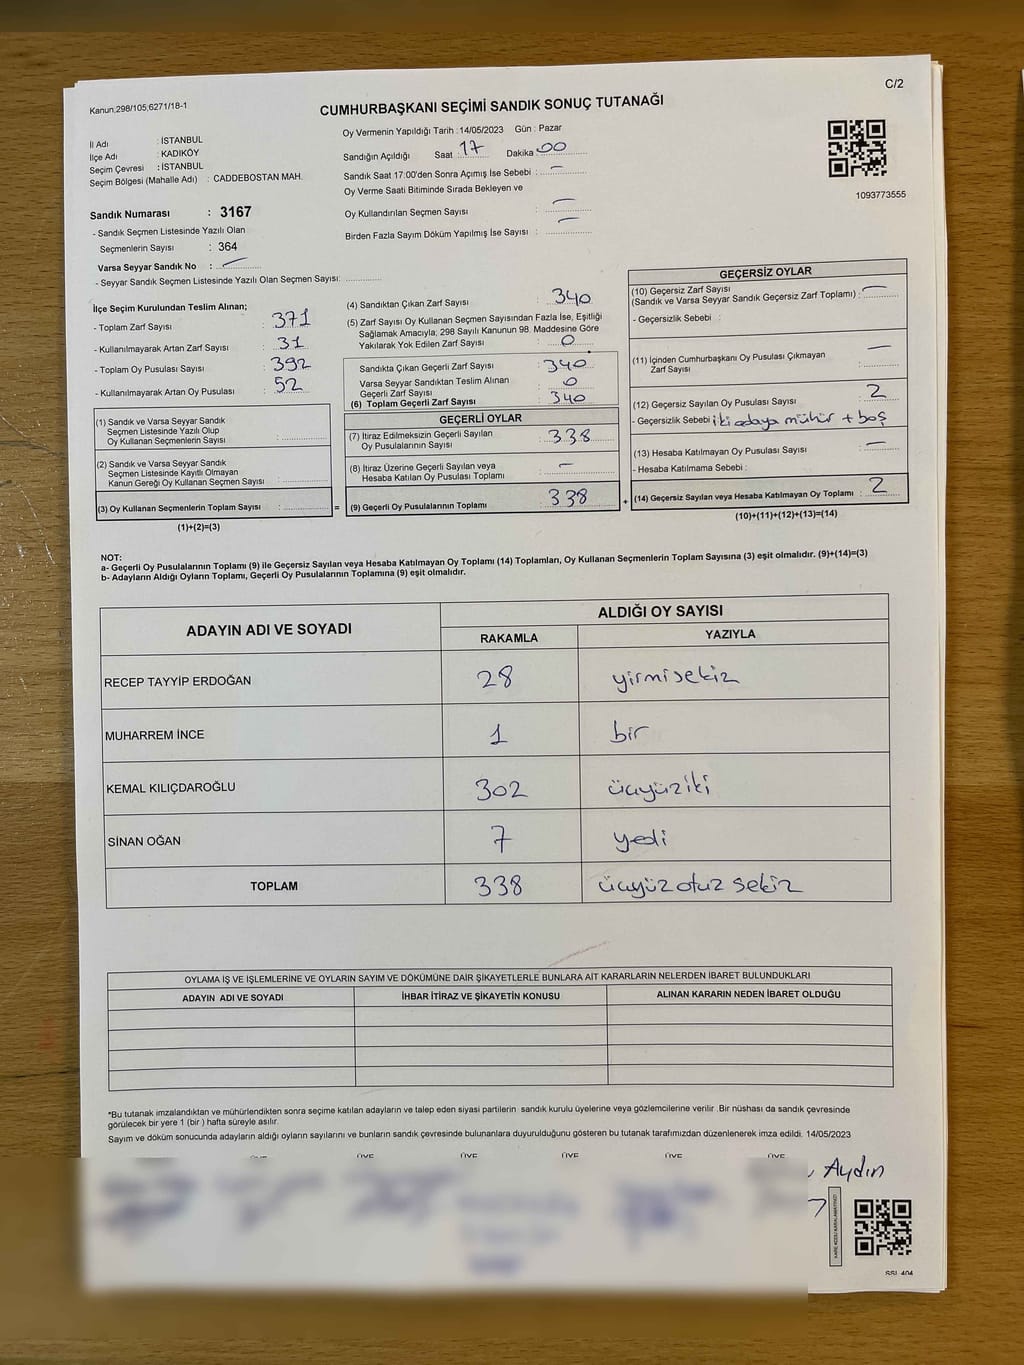 C/2
Kanun,298/105,6271/18-1
CUMHURBAŞKANI SEÇİMİ SANDIK SONUÇ TUTANAĞI
İl Adı : İSTANBUL
İlçe Adı : KADIKÖY
Seçim Çevresi : İSTANBUL
Seçim Bölgesi (Mahalle Adı) : CADDEBOSTAN MAH.
Oy Vermenin Yapıldığı Tarih :14/05/2023 Gün : Pazar
Sandığın Açıldığı Saat : 17 Dakika : 00
Sandık Saat 17:00'den Sonra Açımış İse Sebebi : —
Oy Verme Saati Bitiminde Sırada Bekleyen ve
Oy Kullandırılan Seçmen Sayısı : —
Birden Fazla Sayım Döküm Yapılmış İse Sayısı : —
1093773555
Sandık Numarası : 3167
- Sandık Seçmen Listesinde Yazılı Olan
Seçmenlerin Sayısı : 364
Varsa Seyyar Sandık No : —
- Seyyar Sandık Seçmen Listesinde Yazılı Olan Seçmen Sayısı:
İlçe Seçim Kurulundan Teslim Alınan;
- Toplam Zarf Sayısı : 371
- Kullanılmayarak Artan Zarf Sayısı : 31
- Toplam Oy Pusulası Sayısı : 392
- Kullanılmayarak Artan Oy Pusulası : 52
(1) Sandık ve Varsa Seyyar Sandık
Seçmen Listesinde Yazılı Olup
Oy Kullanan Seçmenlerin Sayısı :
(2) Sandık ve Varsa Seyyar Sandık
Seçmen Listesinde Kayıtlı Olmayan
Kanun Gereği Oy Kullanan Seçmen Sayısı :
(3) Oy Kullanan Seçmenlerin Toplam Sayısı : =
(1)+(2)=(3)
(4) Sandıktan Çıkan Zarf Sayısı : 340
(5) Zarf Sayısı Oy Kullanan Seçmen Sayısından Fazla İse, Eşitliği
Sağlamak Amacıyla, 298 Sayılı Kanunun 98. Maddesine Göre
Yakılarak Yok Edilen Zarf Sayısı : 0
Sandıkta Çıkan Geçerli Zarf Sayısı : 340
Varsa Seyyar Sandıktan Teslim Alınan
Geçerli Zarf Sayısı : 0
(6) Toplam Geçerli Zarf Sayısı : 340
GEÇERLİ OYLAR
(7) İtiraz Edilmeksizin Geçerli Sayılan
Oy Pusulalarının Sayısı : 338
(8) İtiraz Üzerine Geçerli Sayılan veya
Hesaba Katılan Oy Pusulası Toplamı : —
(9) Geçerli Oy Pusulalarının Toplamı : 338 +
GEÇERSİZ OYLAR
(10) Geçersiz Zarf Sayısı
(Sandık ve Varsa Seyyar Sandık Geçersiz Zarf Toplamı) : —
- Geçersizlik Sebebi :
(11) İçinden Cumhurbaşkanı Oy Pusulası Çıkmayan
Zarf Sayısı : —
(12) Geçersiz Sayılan Oy Pusulası Sayısı : 2
- Geçersizlik Sebebi : iki adaya mühür + boş
(13) Hesaba Katılmayan Oy Pusulası Sayısı : —
- Hesaba Katılmama Sebebi :
(14) Geçersiz Sayılan veya Hesaba Katılmayan Oy Toplamı : 2
(10)+(11)+(12)+(13)=(14)
NOT:
a- Geçerli Oy Pusulalarının Toplamı (9) ile Geçersiz Sayılan veya Hesaba Katılmayan Oy Toplamı (14) Toplamları, Oy Kullanan Seçmenlerin Toplam Sayısına (3) eşit olmalıdır. (9)+(14)=(3)
b- Adayların Aldığı Oyların Toplamı, Geçerli Oy Pusulalarının Toplamına (9) eşit olmalıdır.
ADAYIN ADI VE SOYADI ALDIĞI OY SAYISI
RAKAMLA YAZIYLA
RECEP TAYYİP ERDOĞAN 28 yirmisekiz
MUHARREM İNCE 1 bir
KEMAL KILIÇDAROĞLU 302 üçyüziki
SİNAN OĞAN 7 yedi
TOPLAM 338 üçyüz otuz sekiz
OYLAMA İŞ VE İŞLEMLERİNE VE OYLARIN SAYIM VE DÖKÜMÜNE DAİR ŞİKAYETLERLE BUNLARA AİT KARARLARIN NELERDEN İBARET BULUNDUKLARI
ADAYIN ADI VE SOYADI İHBAR İTİRAZ VE ŞİKAYETİN KONUSU ALINAN KARARIN NEDEN İBARET OLDUĞU
*Bu tutanak imzalandıktan ve mühürlendikten sonra seçime katılan adayların ve talep eden siyasi partilerin sandık kurulu üyelerine veya gözlemcilerine verilir .Bir nüshası da sandık çevresinde
görülecek bir yere 1 (bir ) hafta süreyle asılır.
Sayım ve döküm sonucunda adayların aldığı oyların sayılarını ve bunların sandık çevresinde bulunanlara duyurulduğunu gösteren bu tutanak tarafımızdan düzenlenerek imza edildi. 14/05/2023
ÜYE ÜYE ÜYE ÜYE ÜYE ÜYE
Aydın